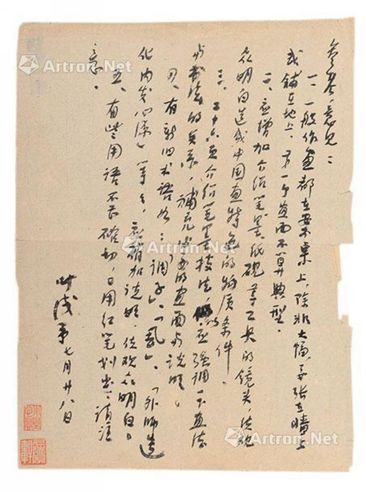 参考意见：
一、一般作画都在案桌上，除非大幅，才张在墙上
或铺在地上，第一个画面不算典型。
二、应增加介绍笔墨纸砚等工具的镜头，使观
众明白造成中国画特色的物质条件。
三、介绍笔墨技法，应强调一下画法
与书法的关系，补充必要的画面与说明。
四、有新旧术语如：“调子”、“外师造
化内发心源”等等，应稍加说明，使观众明白。
五、有些用语不甚确切，已用红笔划出，请注
意。
叶浅予 七月廿八日
Artron.Net
Artron.Net
Artron.Net
Artron.Net